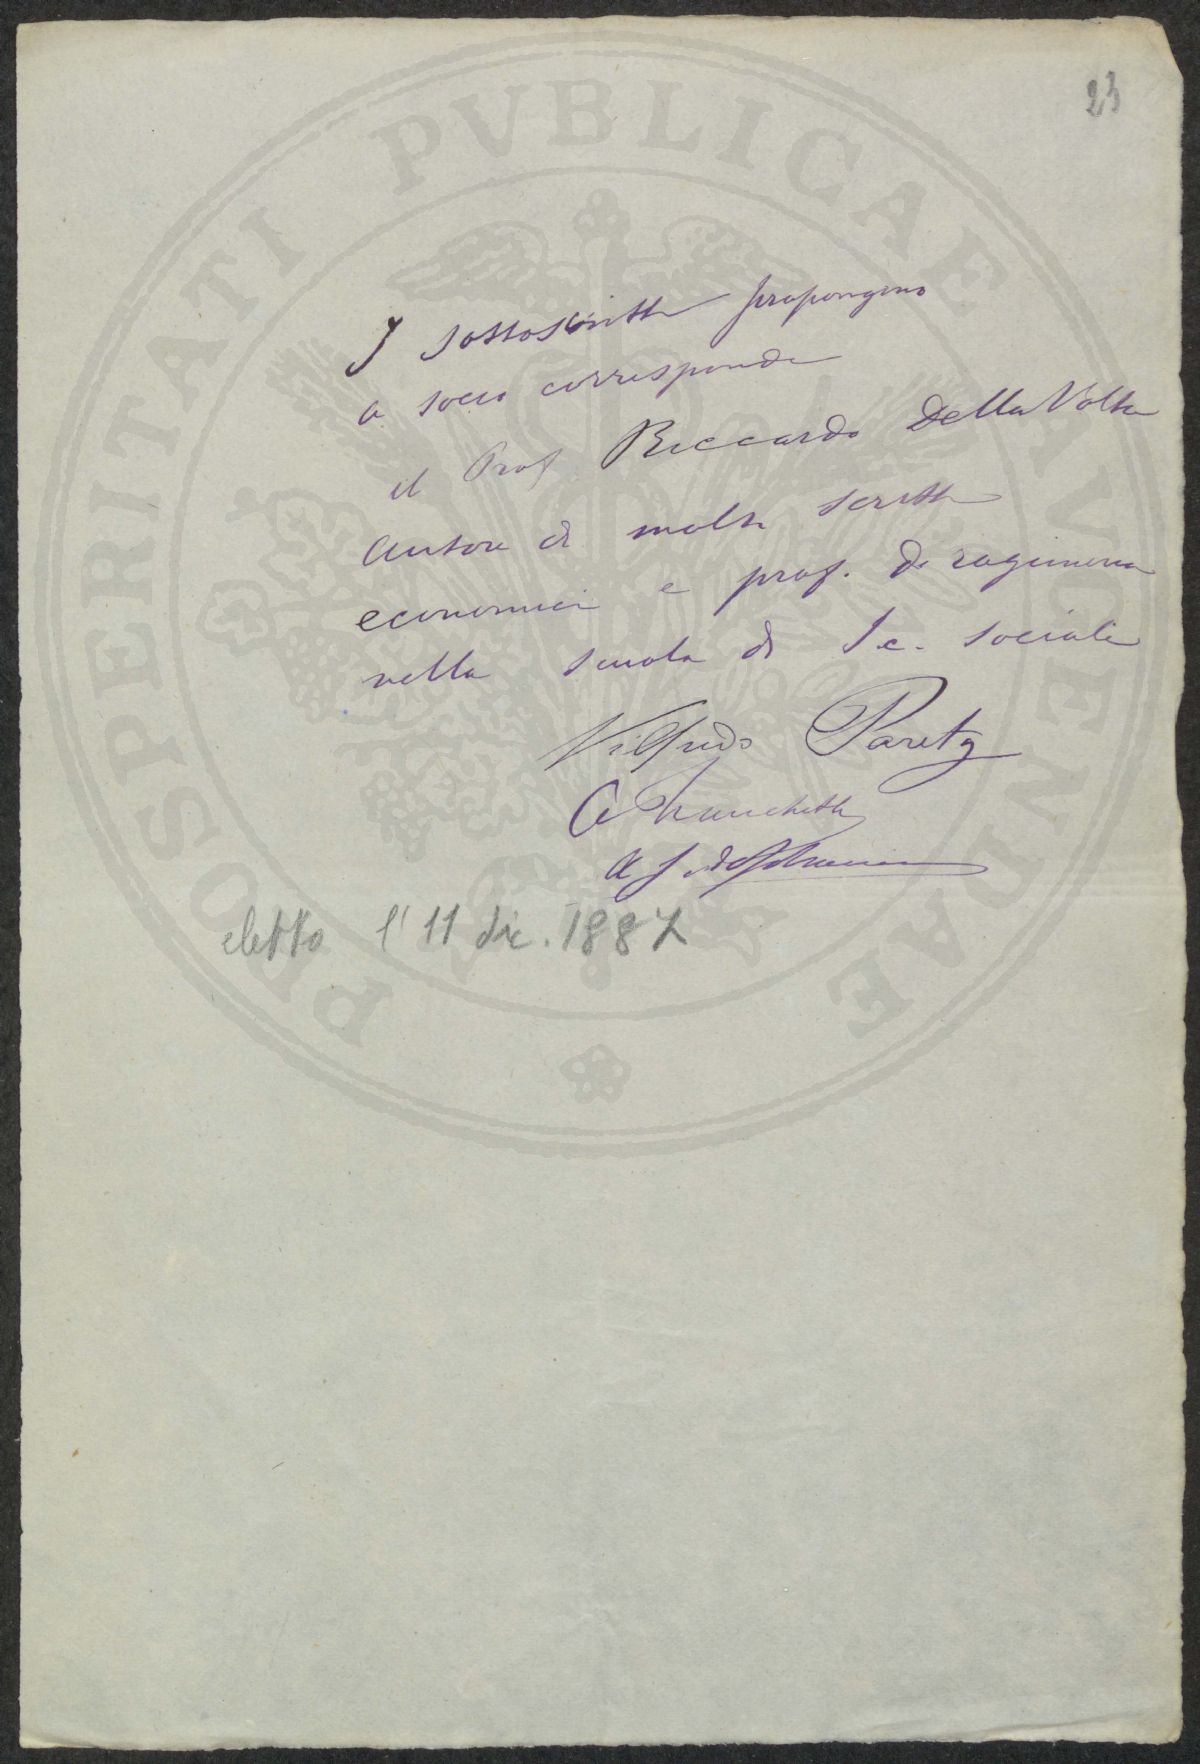 23
I sottoscritti propongono
a socio corrisponde
il Prof Riccardo Della Volta
autore di molti scritti
economici e prof. di ragioneria
nella scuola di Sc. sociali
Vilfredo Pareto
A Franchetti
eletto l'11 dic. 1887
PROSPERITATI PVBLICAE AVGENDAE